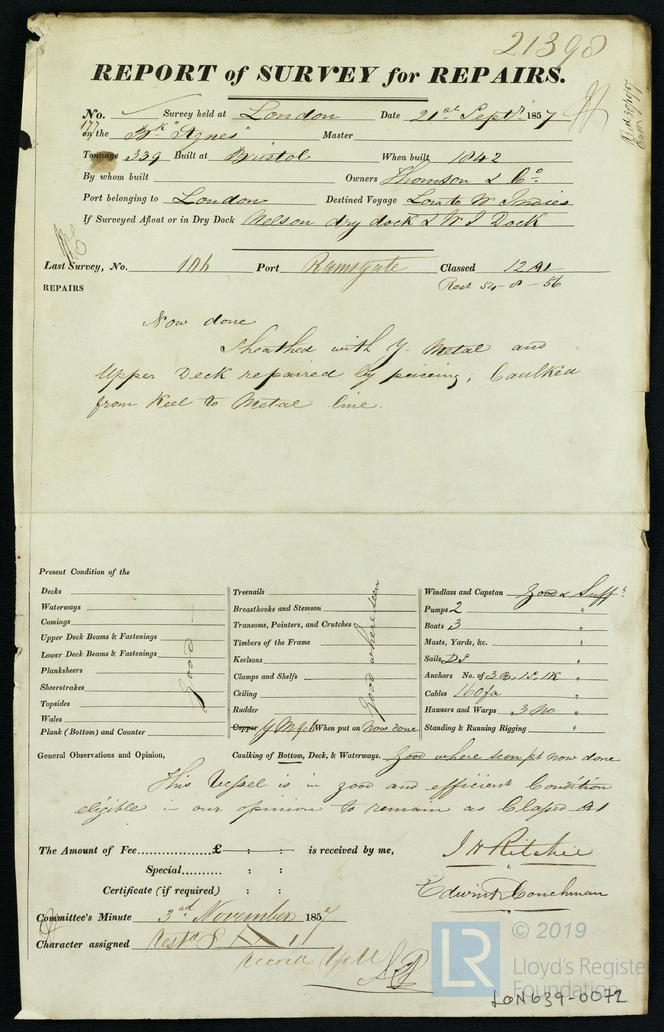 21398
REPORT of SURVEY for REPAIRS.
No. Survey held at London Date 21st Septr. 1857
177 on the Bk "Agnes" Master
Tonnage 339 Built at Bristol When built 1842
By whom built Owners Thomson & Co.
Port belonging to London Destined Voyage Lon to W Indies
If Surveyed Afloat or in Dry Dock Nelson dry dock & W I Dock
Last Survey, No. 106 Port Ramsgate Classed 12 A1
REPAIRS Rest 54-8-56
Now done
Sheathed with Y. Metal and
Upper Deck repaired by pieceing; Caulked
from Keel to Metal line.
Present Condition of the
Decks
Waterways
Comings
Upper Deck Beams & Fastenings
Lower Deck Beams & Fastenings
Planksheers
Sheerstrakes
Topsides
Wales
Plank (Bottom) and Counter
Good
Treenails
Breasthooks and Stemson
Transoms, Pointers, and Crutches
Timbers of the Frame
Keelsons
Clamps and Shelfs
Ceiling
Rudder
Good where seen
Copper Y M & f When put on Now done
Windlass and Capstan Good & Suff t
Pumps 2 "
Boats 3 "
Masts, Yards, &c. "
Sails DS "
Anchors No. of 3 B, 1 S, 1 K "
Cables 160 fa "
Hawsers and Warps 3 No "
Standing & Running Rigging "
General Observations and Opinion, Caulking of Bottom, Deck, & Waterways. Good where seen pt now done
This Vessel is in good and efficient Condition
eligible in our opinion to remain as Classed A1
The Amount of Fee £ : : is received by me,
Special : :
Certificate (if required) : :
J H Ritchie
Edwin Couchman
Committee's Minute 3rd November 1857
Character assigned Restd
Record YM
LR © 2019
Lloyd's Register
Foundation
LON639-0072